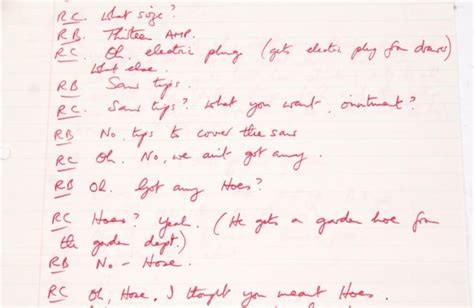 RC. What size?
RB. Thirteen AMP.
RC. Oh, electric plug (gets electric plug from drawer)
What else.
RB Saw tips.
RC. Saw tips? What you want, ointment?
RB No. tips to cover the saw
RC Oh. No, we ain't got any.
RB Oh. Got any Hoes?
RC Hoes? Yeah. (He gets a garden hoe from
the garden dept.)
RB No - Hose.
RC Oh, Hose, I thought you meant Hoes.